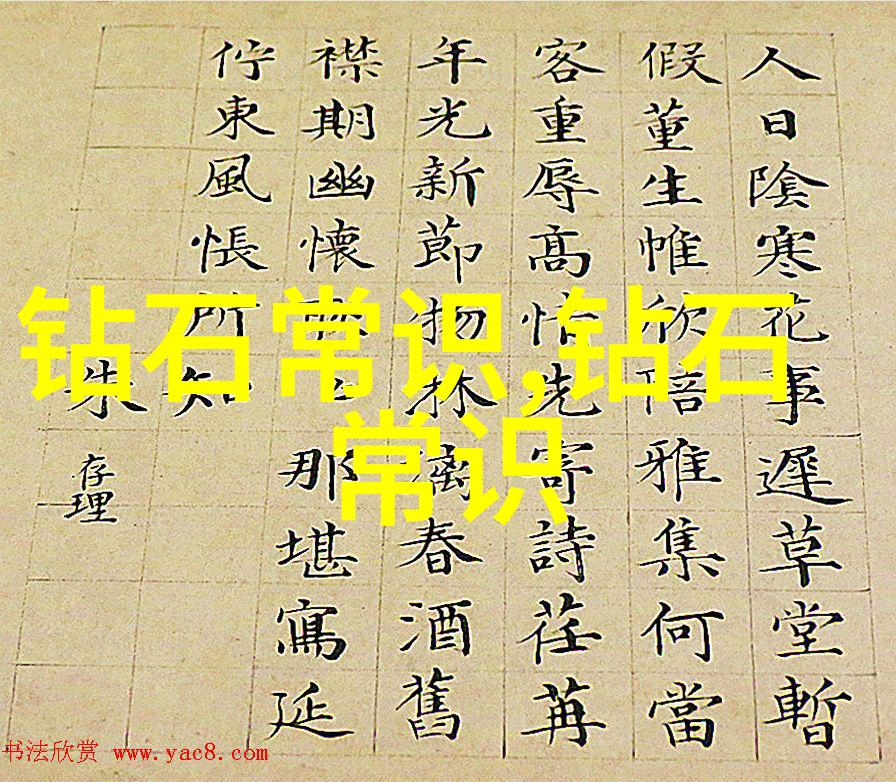 人日陰寒花事遲草堂暫
假董生帷欣陪雅集何當
客重辱髙情先寄詩荏苒
年光新節物淋漓春酒舊
襟期幽懷那堪寫延
佇東風悵所知
朱存理
钻石常识,钻石
常识
书法欣赏 www.yac8.com